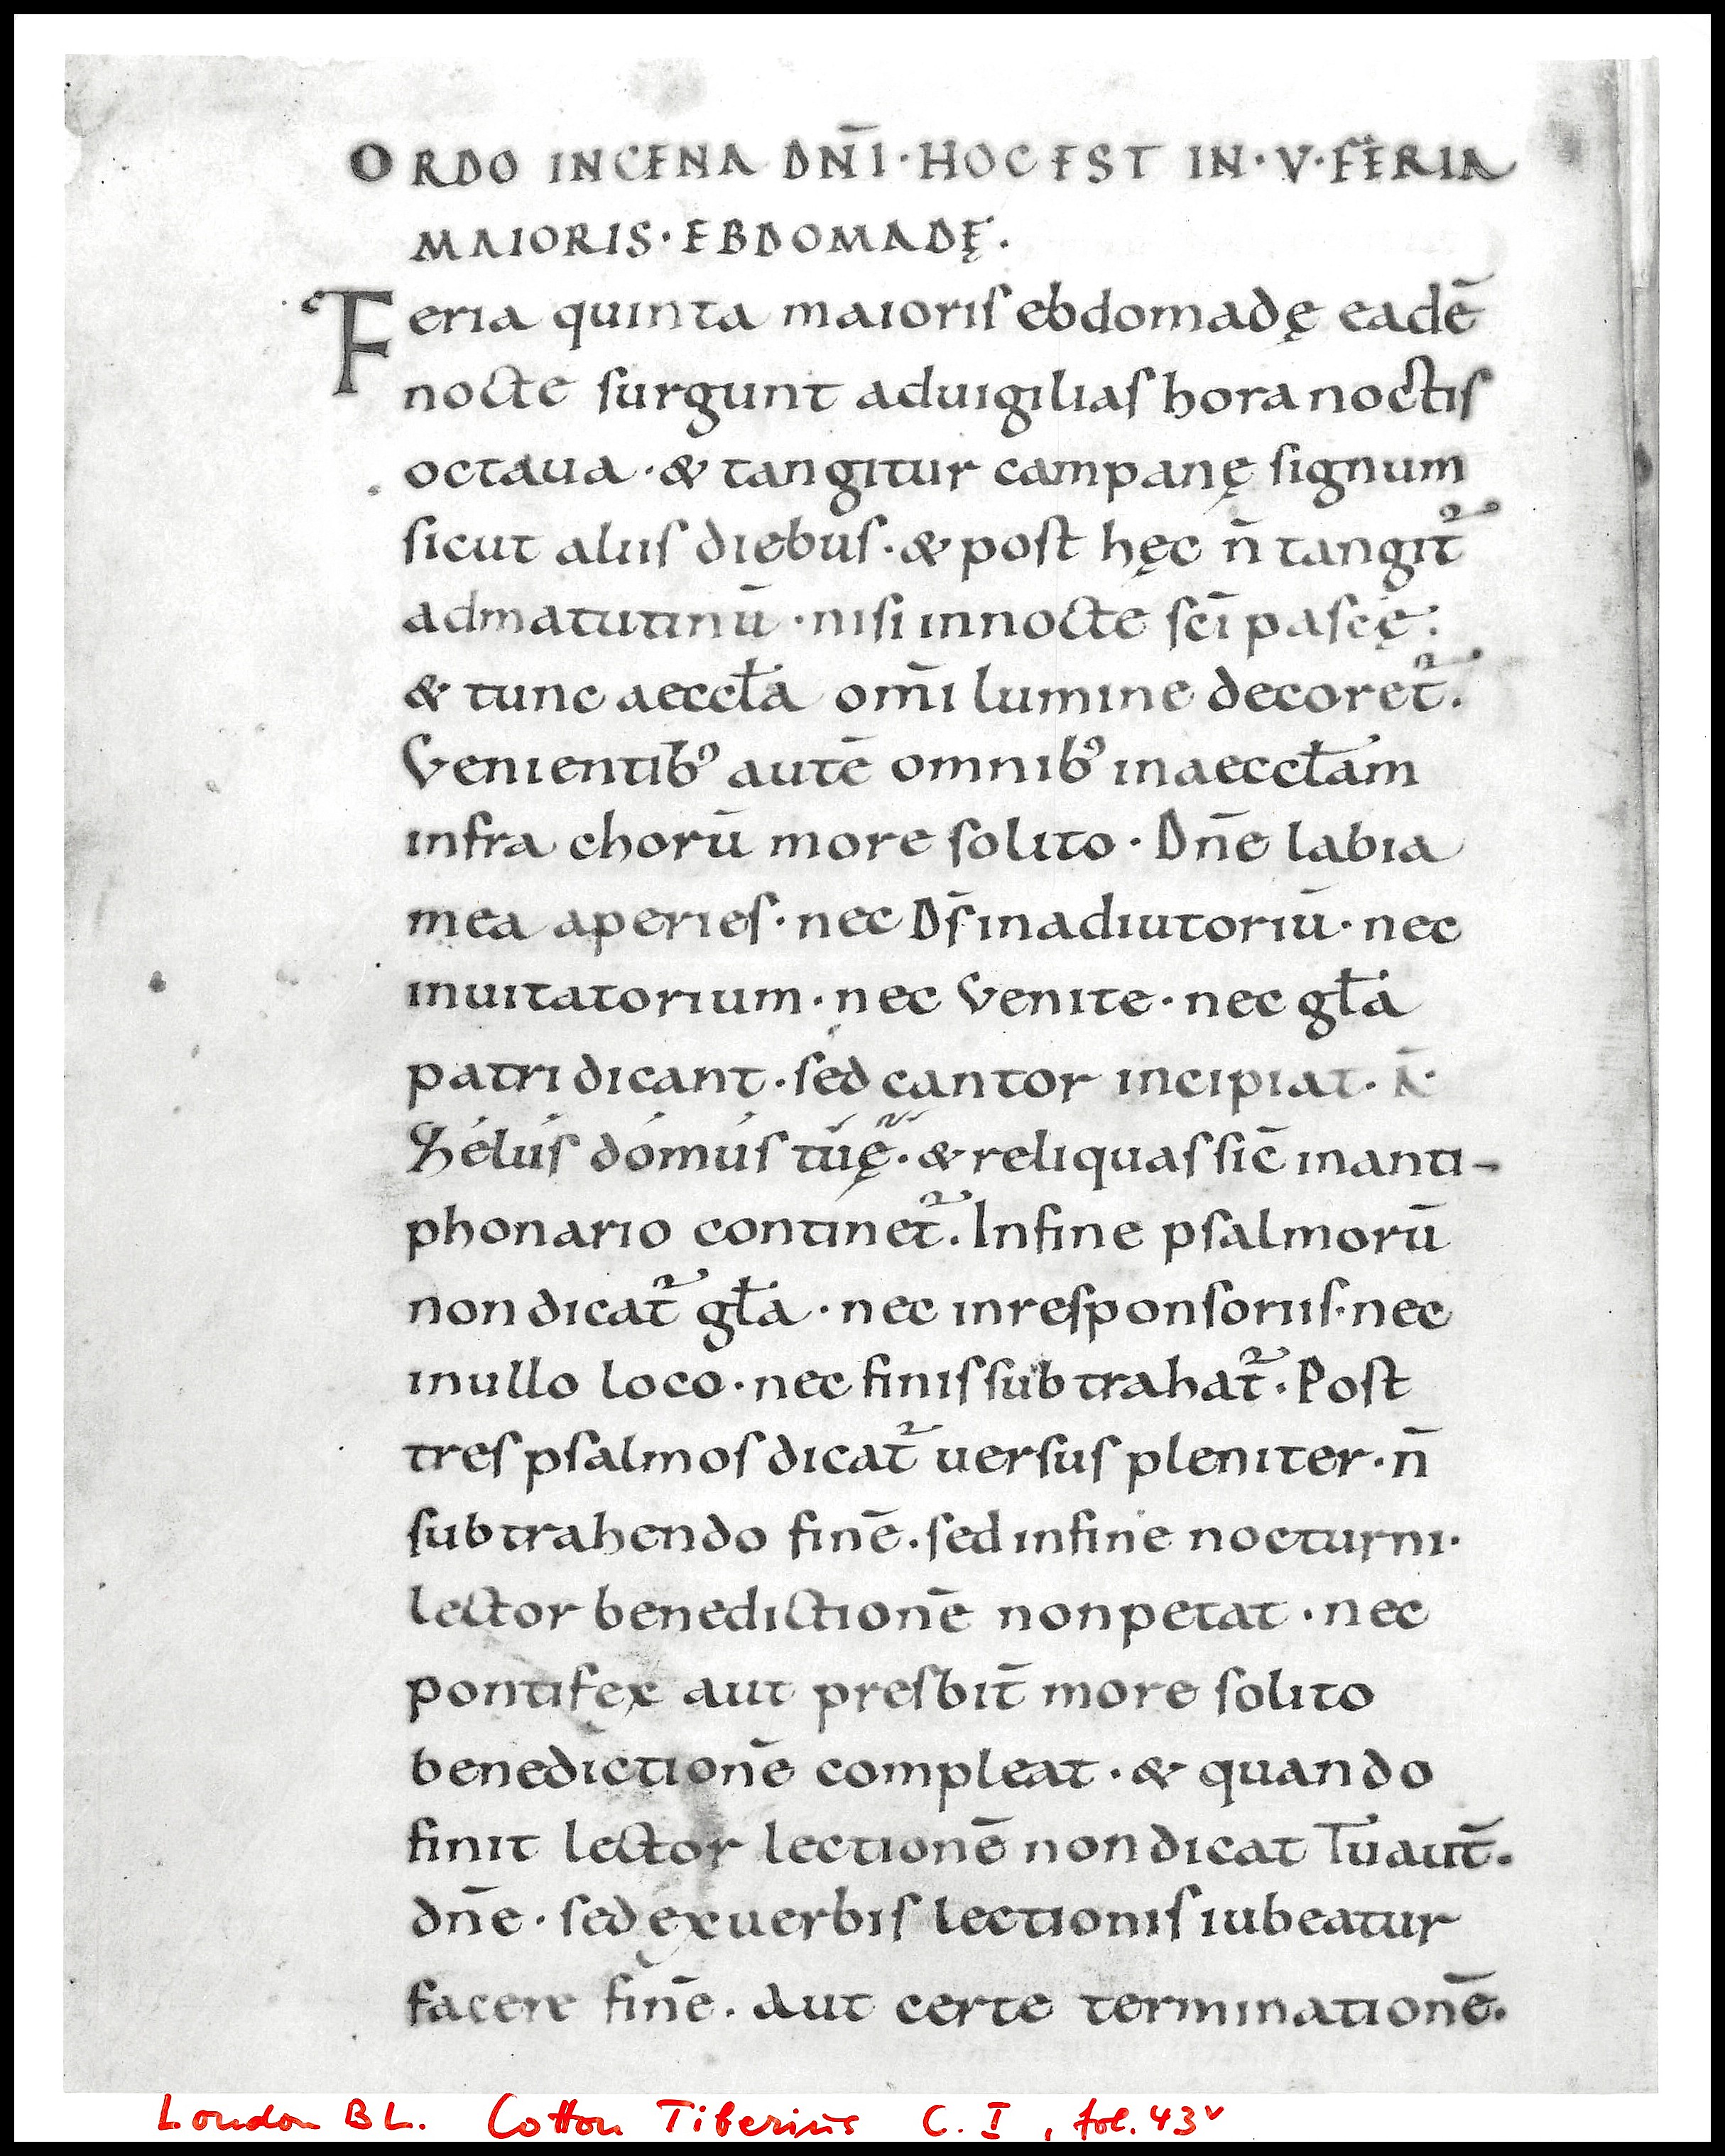 ORDO INCENA DÑI·HOC EST IN·V·FERIA
MAIORIS·EBDOMADĘ.
Feria quinta maioriſ ebdomadę eadē
nocte ſurgunt aduigiliaſ hora noctiſ
octaua·& tangitur campanę ſignum
ſicut aliiſ diebuſ·& poſt hęc n̄ tangit᷑
admatutinū·niſi innocte ſc̄i paſcę:
& tunc aeccƚa om̄i lumine decoret᷑.
Venientibꝰ autē omnibꝰ inaeccƚam
infra chorū more ſolito·Dn̄e labia
mea aperieſ·nec Dſ̄ inadiutoriū·nec
inuitatorium·nec Venite·nec gƚa
patri dicant·ſed cantor incipiat·A̅·
Zéluſ dómuſ tuę·& reliquaſ ſic̄ inanti-
phonario continet᷑. Infine pſalmorū
non dicat᷑ gƚa·nec inreſponſoriiſ·nec
inullo loco·nec finiſ ſubtrahat᷑. Poſt
treſ pſalmoſ dicat᷑ uerſuſ pleniter·n̄
ſubtrahendo finē.ſed infine nocturni·
lector benedictionē nonpetat·nec
pontifex aut preſbit̄ more ſolito
benedictionē compleat·& quando
finit lector lectionē non dicat Tu aut̄.
dn̄e·ſed ex uerbiſ lectioniſ iubeatur
facere finē. aut certe terminationē.
London BL. Cotton Tiberius C. I, fol. 43ᵛ